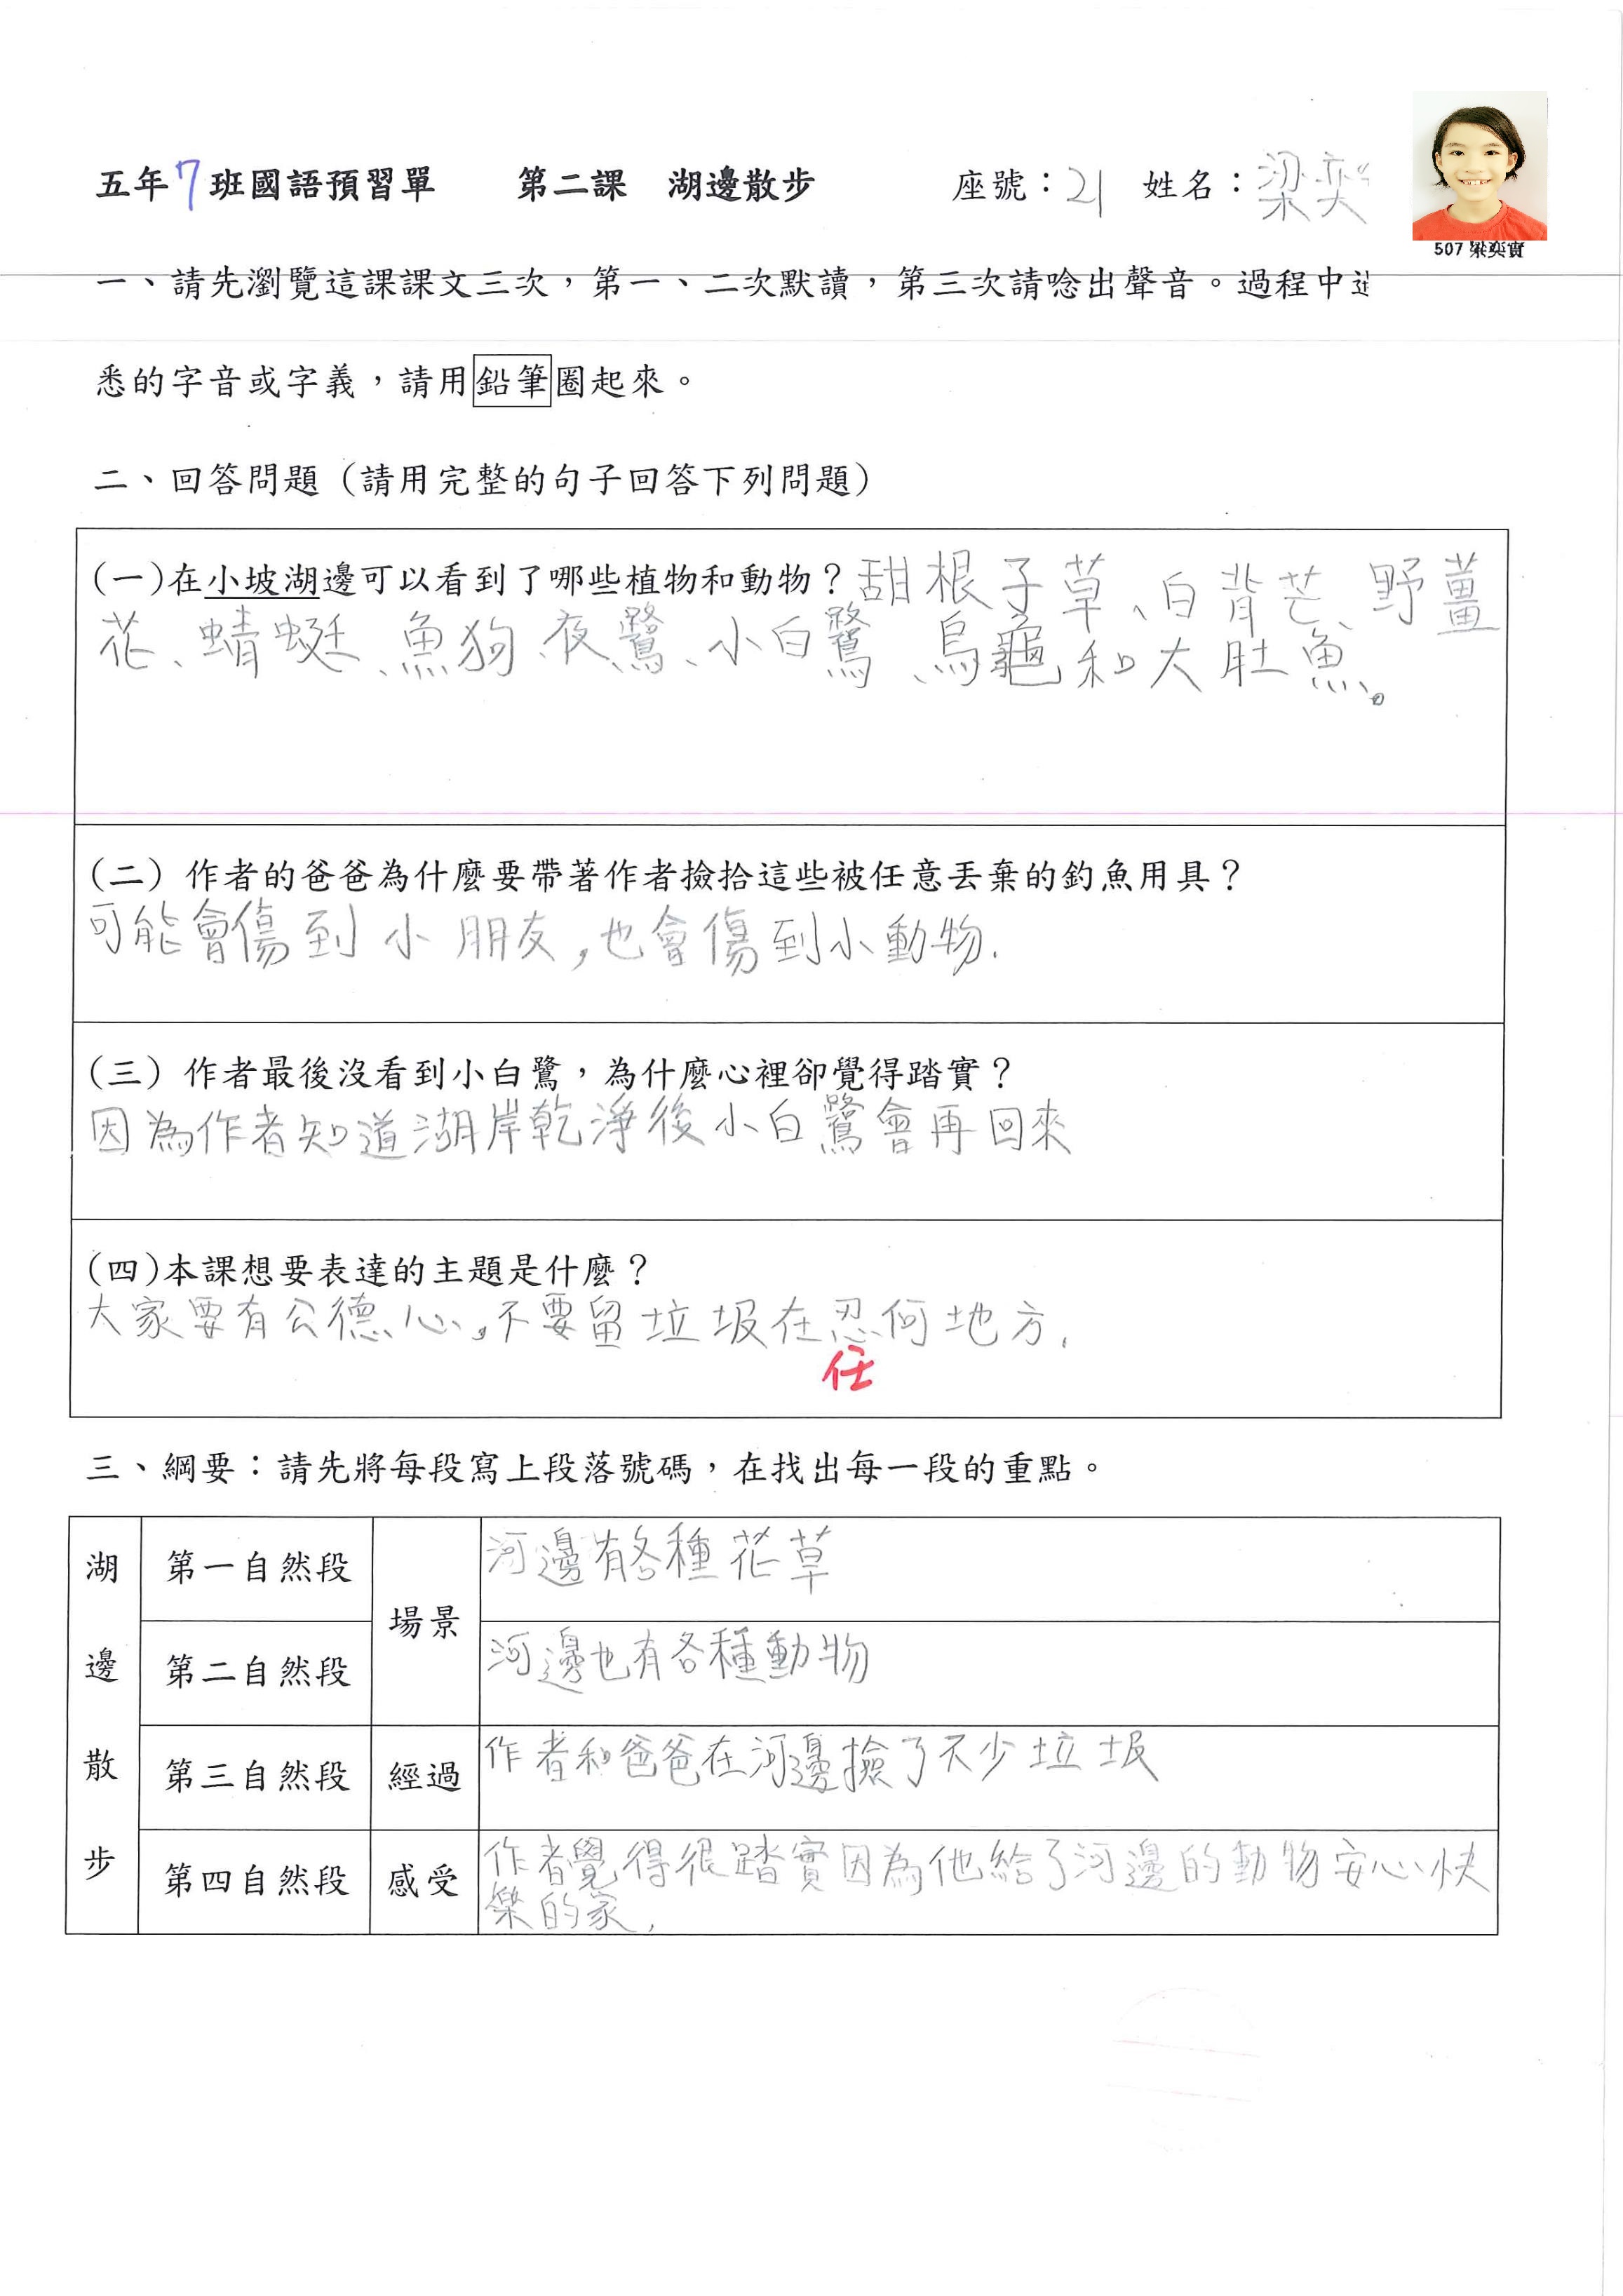 五年7班國語預習單 第二課 湖邊散步 座號：21 姓名：梁奕
507 梁奕實
一、請先瀏覽這課課文三次，第一、二次默讀，第三次請唸出聲音。過程中
悉的字音或字義，請用鉛筆圈起來。
二、回答問題（請用完整的句子回答下列問題）
(一)在小坡湖邊可以看到了哪些植物和動物？甜根子草、白背芒、野薑
花、蜻蜓、魚狗、夜鷺、小白鷺、烏龜和大肚魚。
(二) 作者的爸爸為什麼要帶著作者撿拾這些被任意丟棄的釣魚用具？
可能會傷到小朋友，也會傷到小動物.
(三) 作者最後沒看到小白鷺，為什麼心裡卻覺得踏實？
因為作者知道湖岸乾淨後小白鷺會再回來
(四)本課想要表達的主題是什麼？
大家要有公德心，不要留垃圾在忍何地方.
任
三、綱要：請先將每段寫上段落號碼，在找出每一段的重點。
湖邊散步
第一自然段 場景 河邊有各種花草
第二自然段 河邊也有各種動物
第三自然段 經過 作者和爸爸在河邊撿了不少垃圾
第四自然段 感受 作者覺得很踏實因為他給了河邊的動物安心快
樂的家.